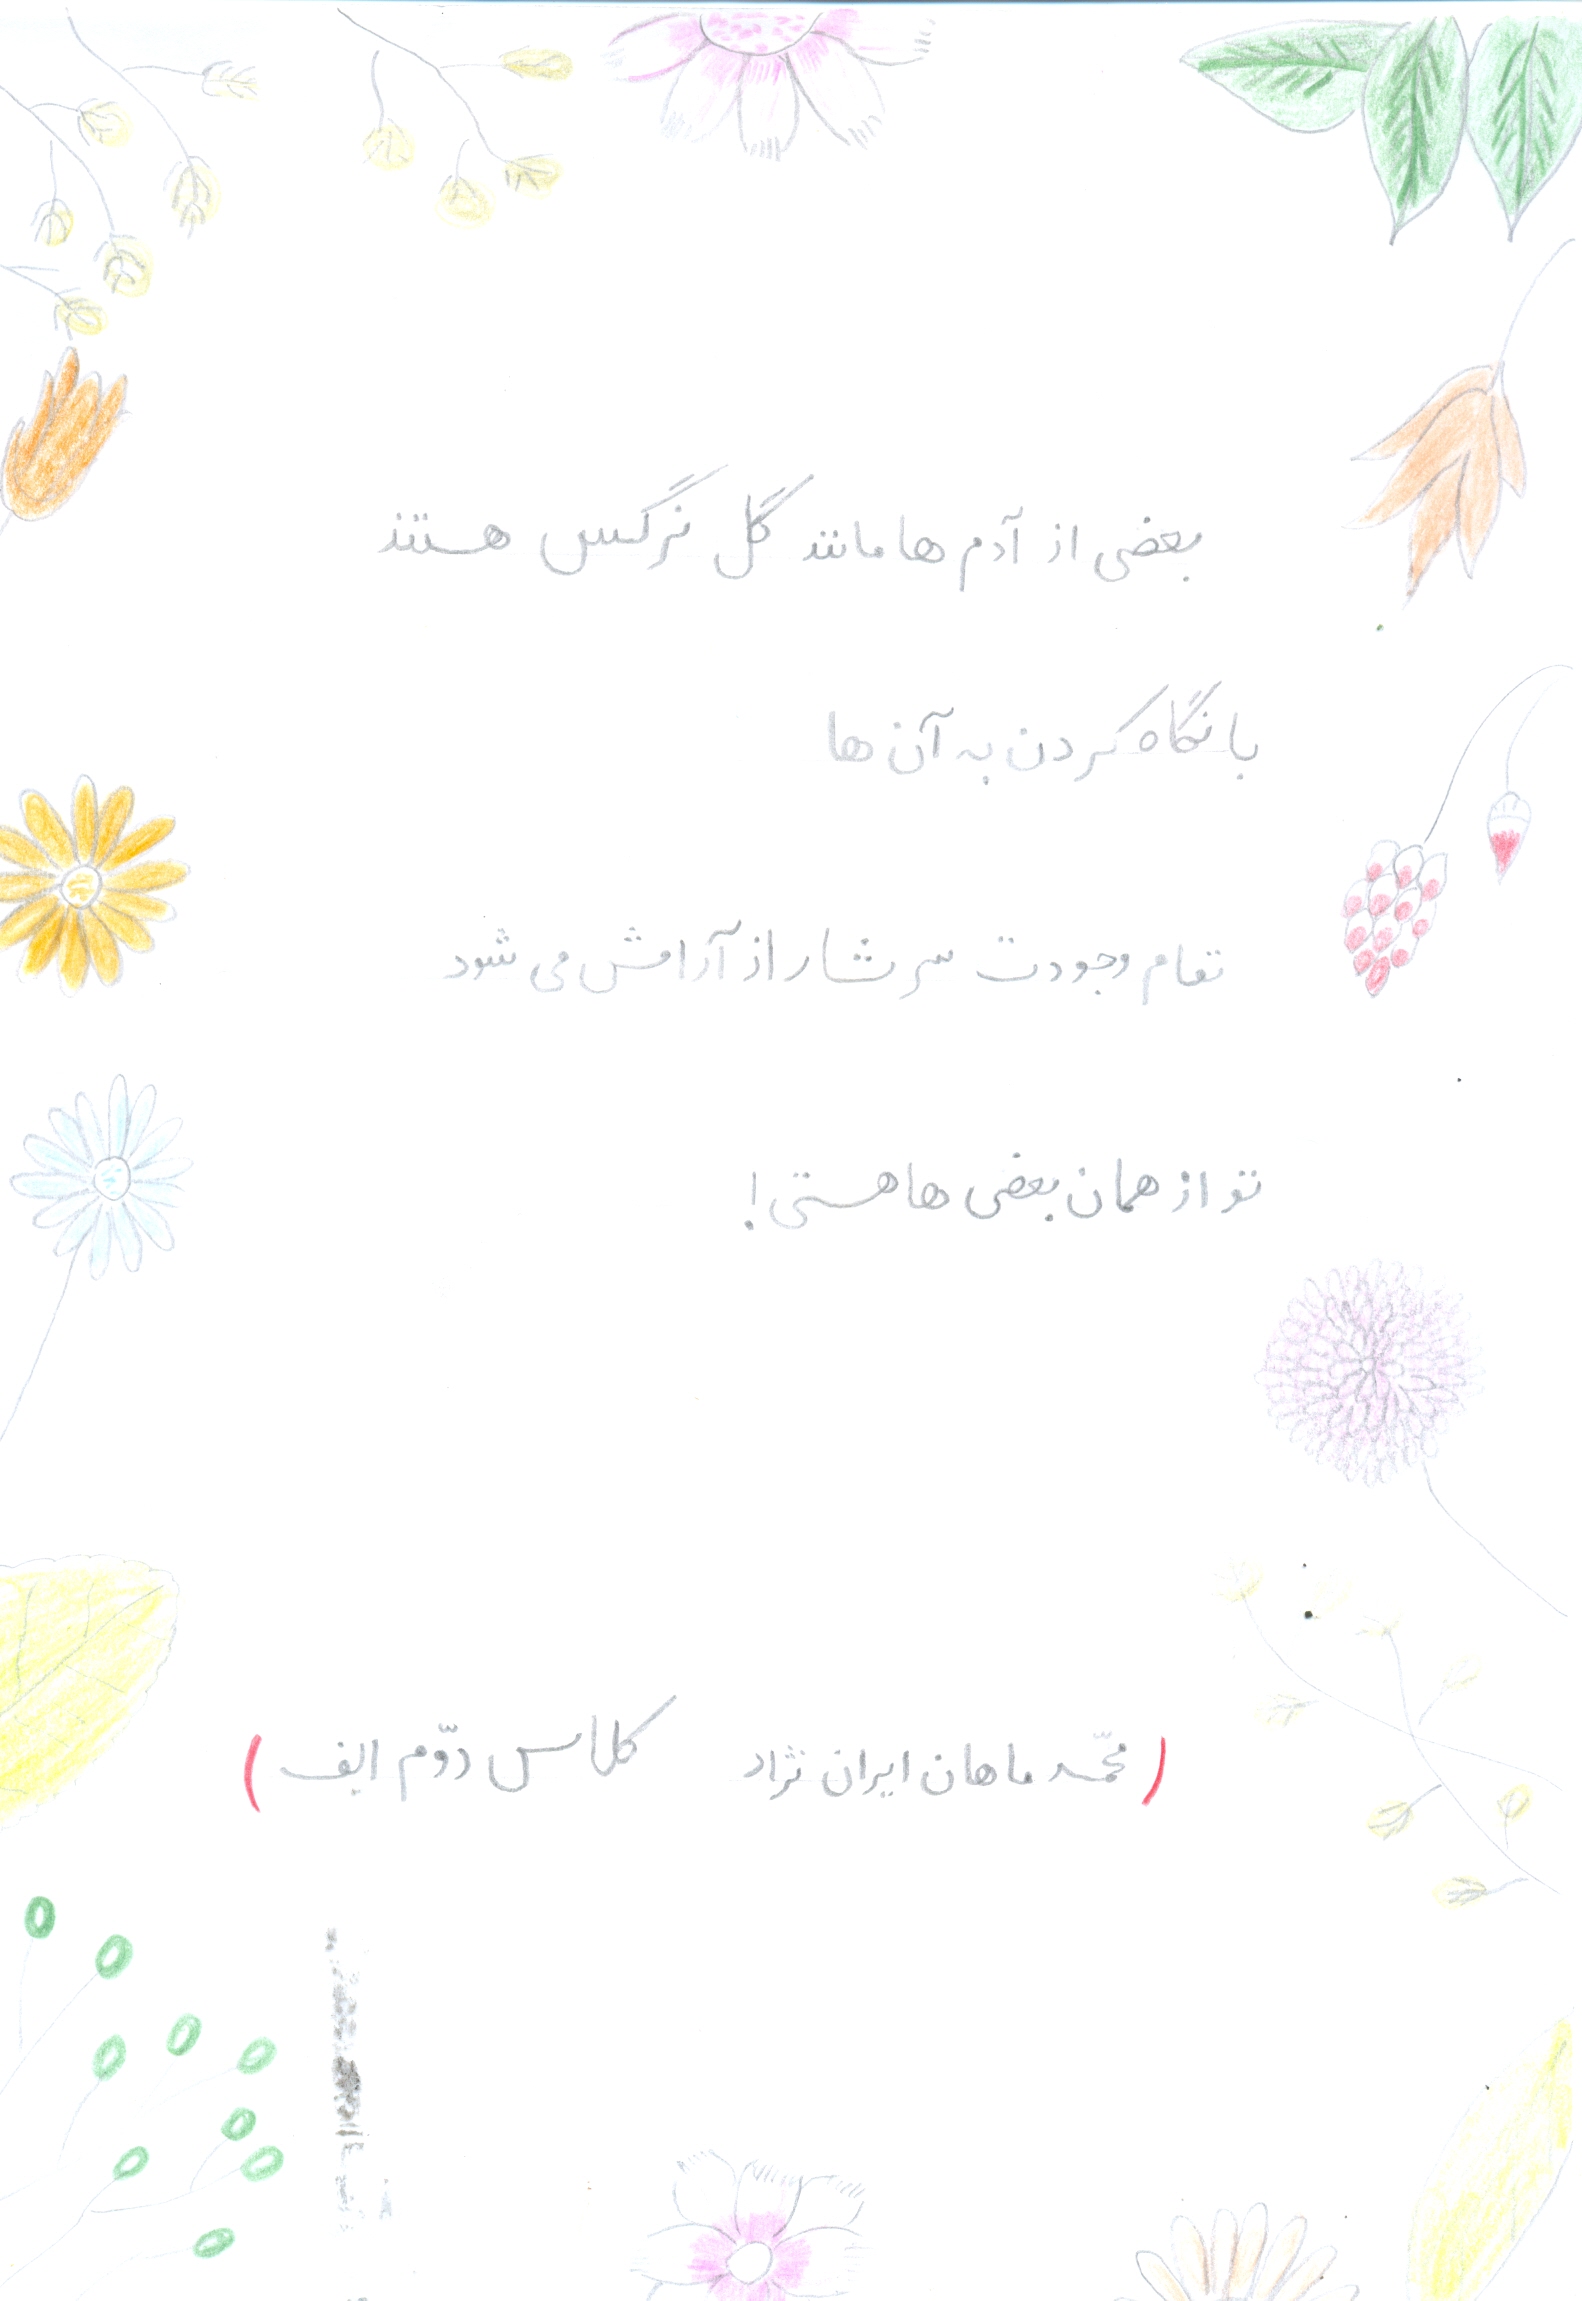 بعضی از آدم ها مانند گل نرگس هستند
با نگاه کردن به آن ها
تمام وجودت سرشار از آرامش می شود
تو از همان بعضی ها هستی!
(محمّد ماهان ایران نژاد کلاس دوّم الف)